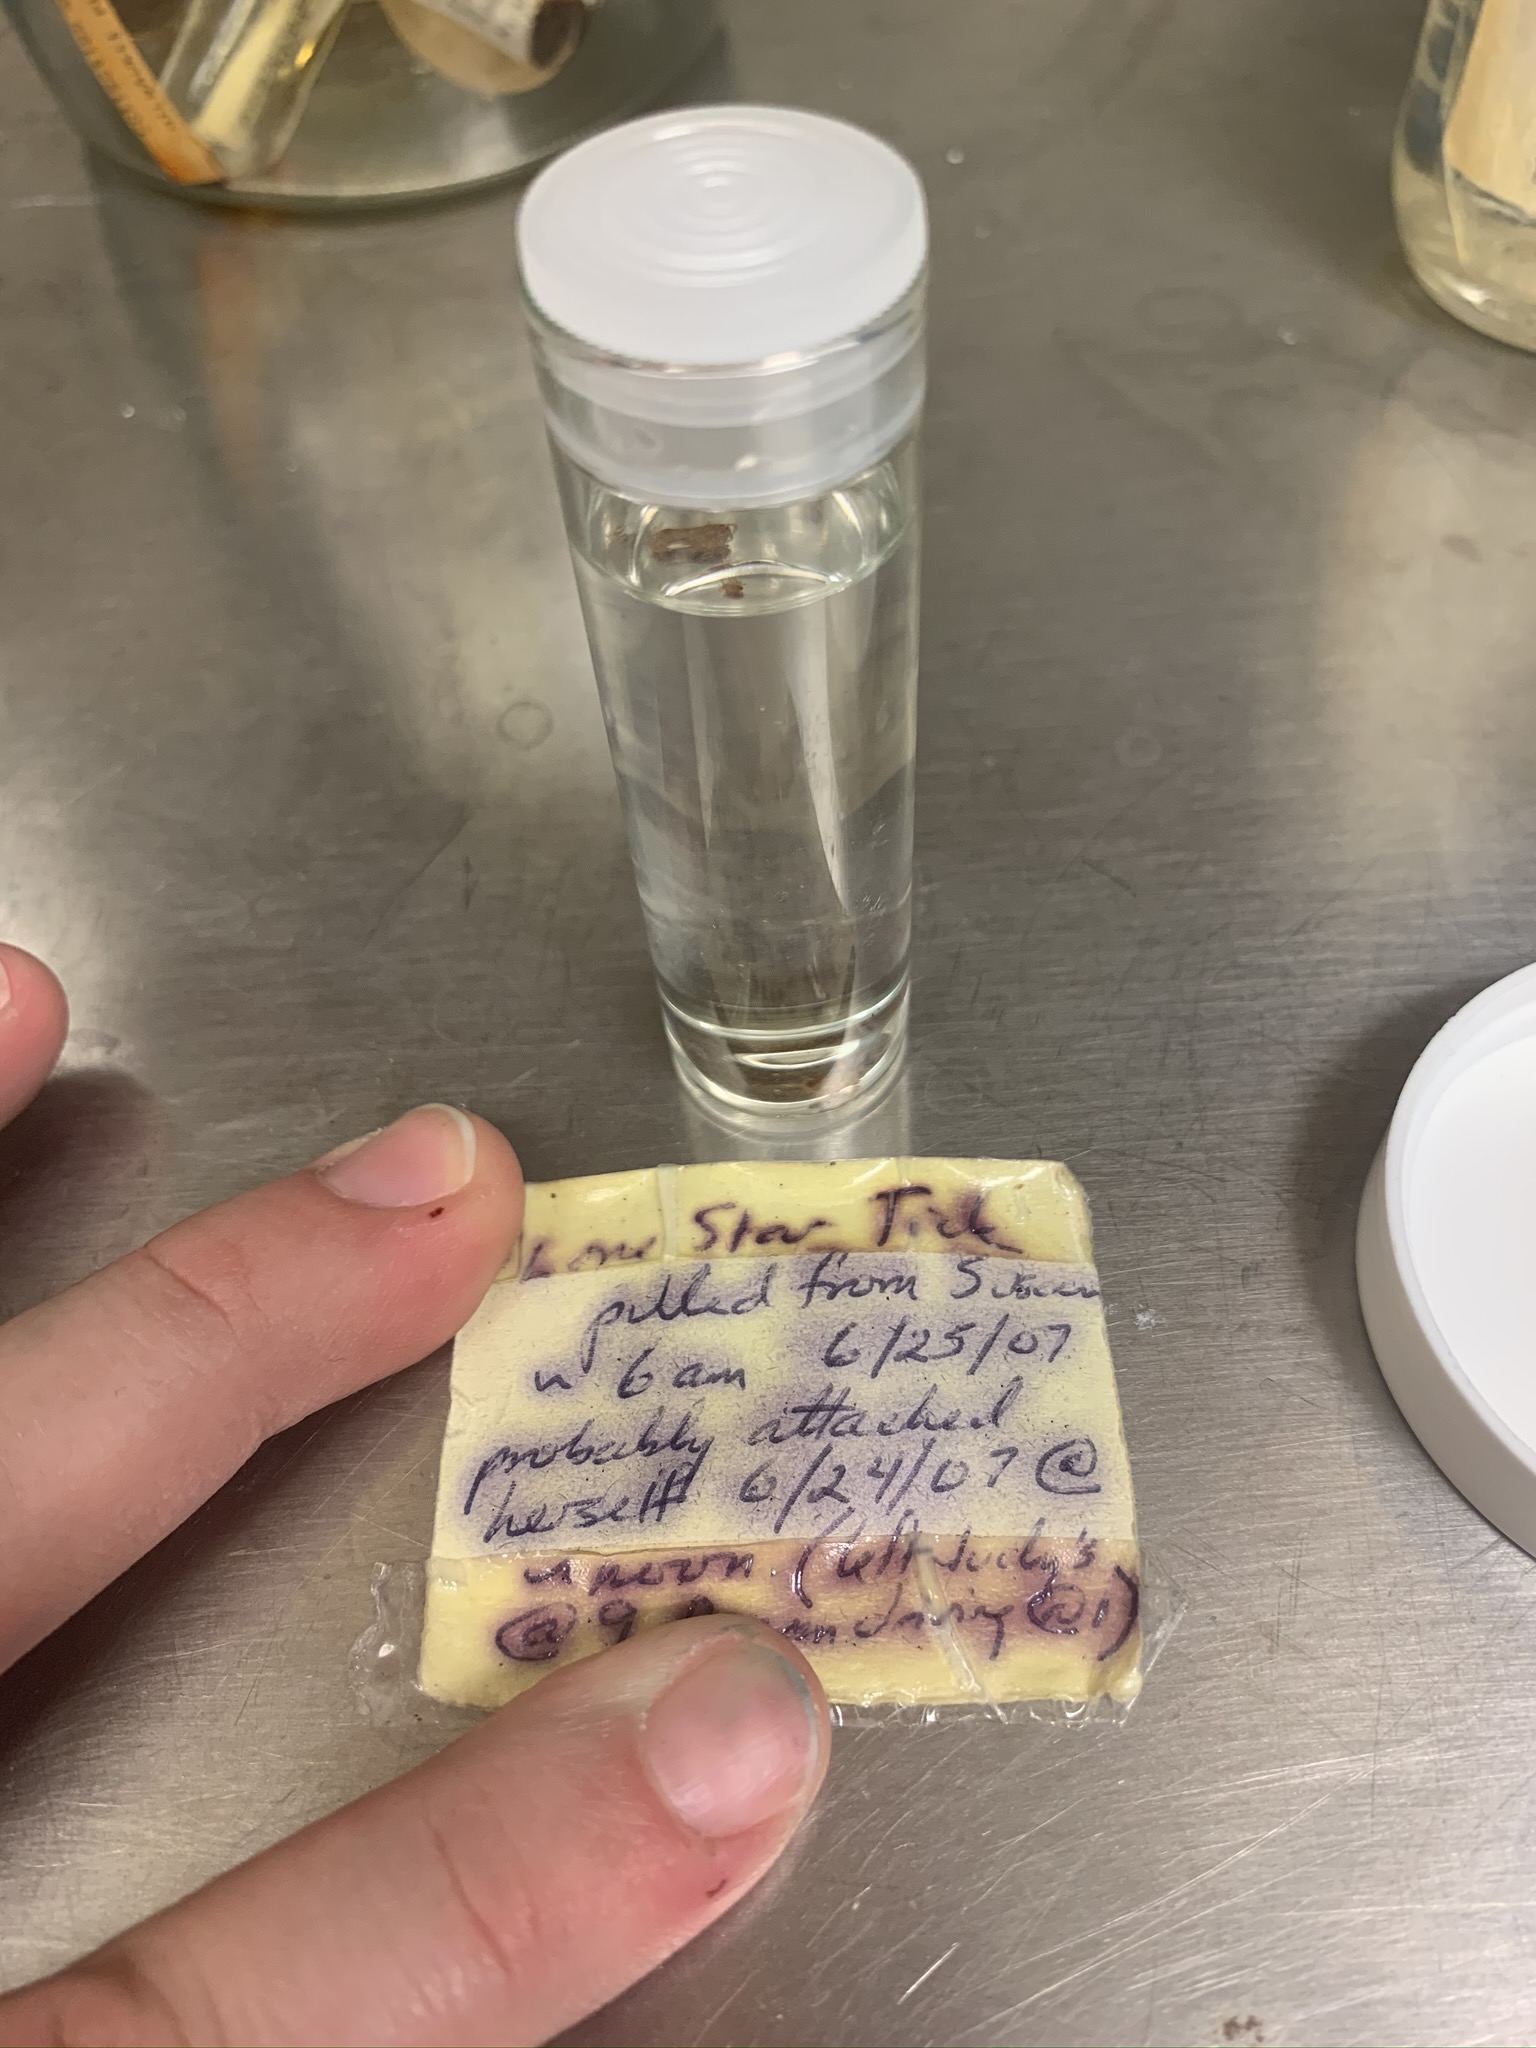 Lone Star Tick
pulled from Susan
~ 6 am 6/25/07
probably attached
herself 6/24/07 @
~ noon (left Judy's
@ 9 @1)